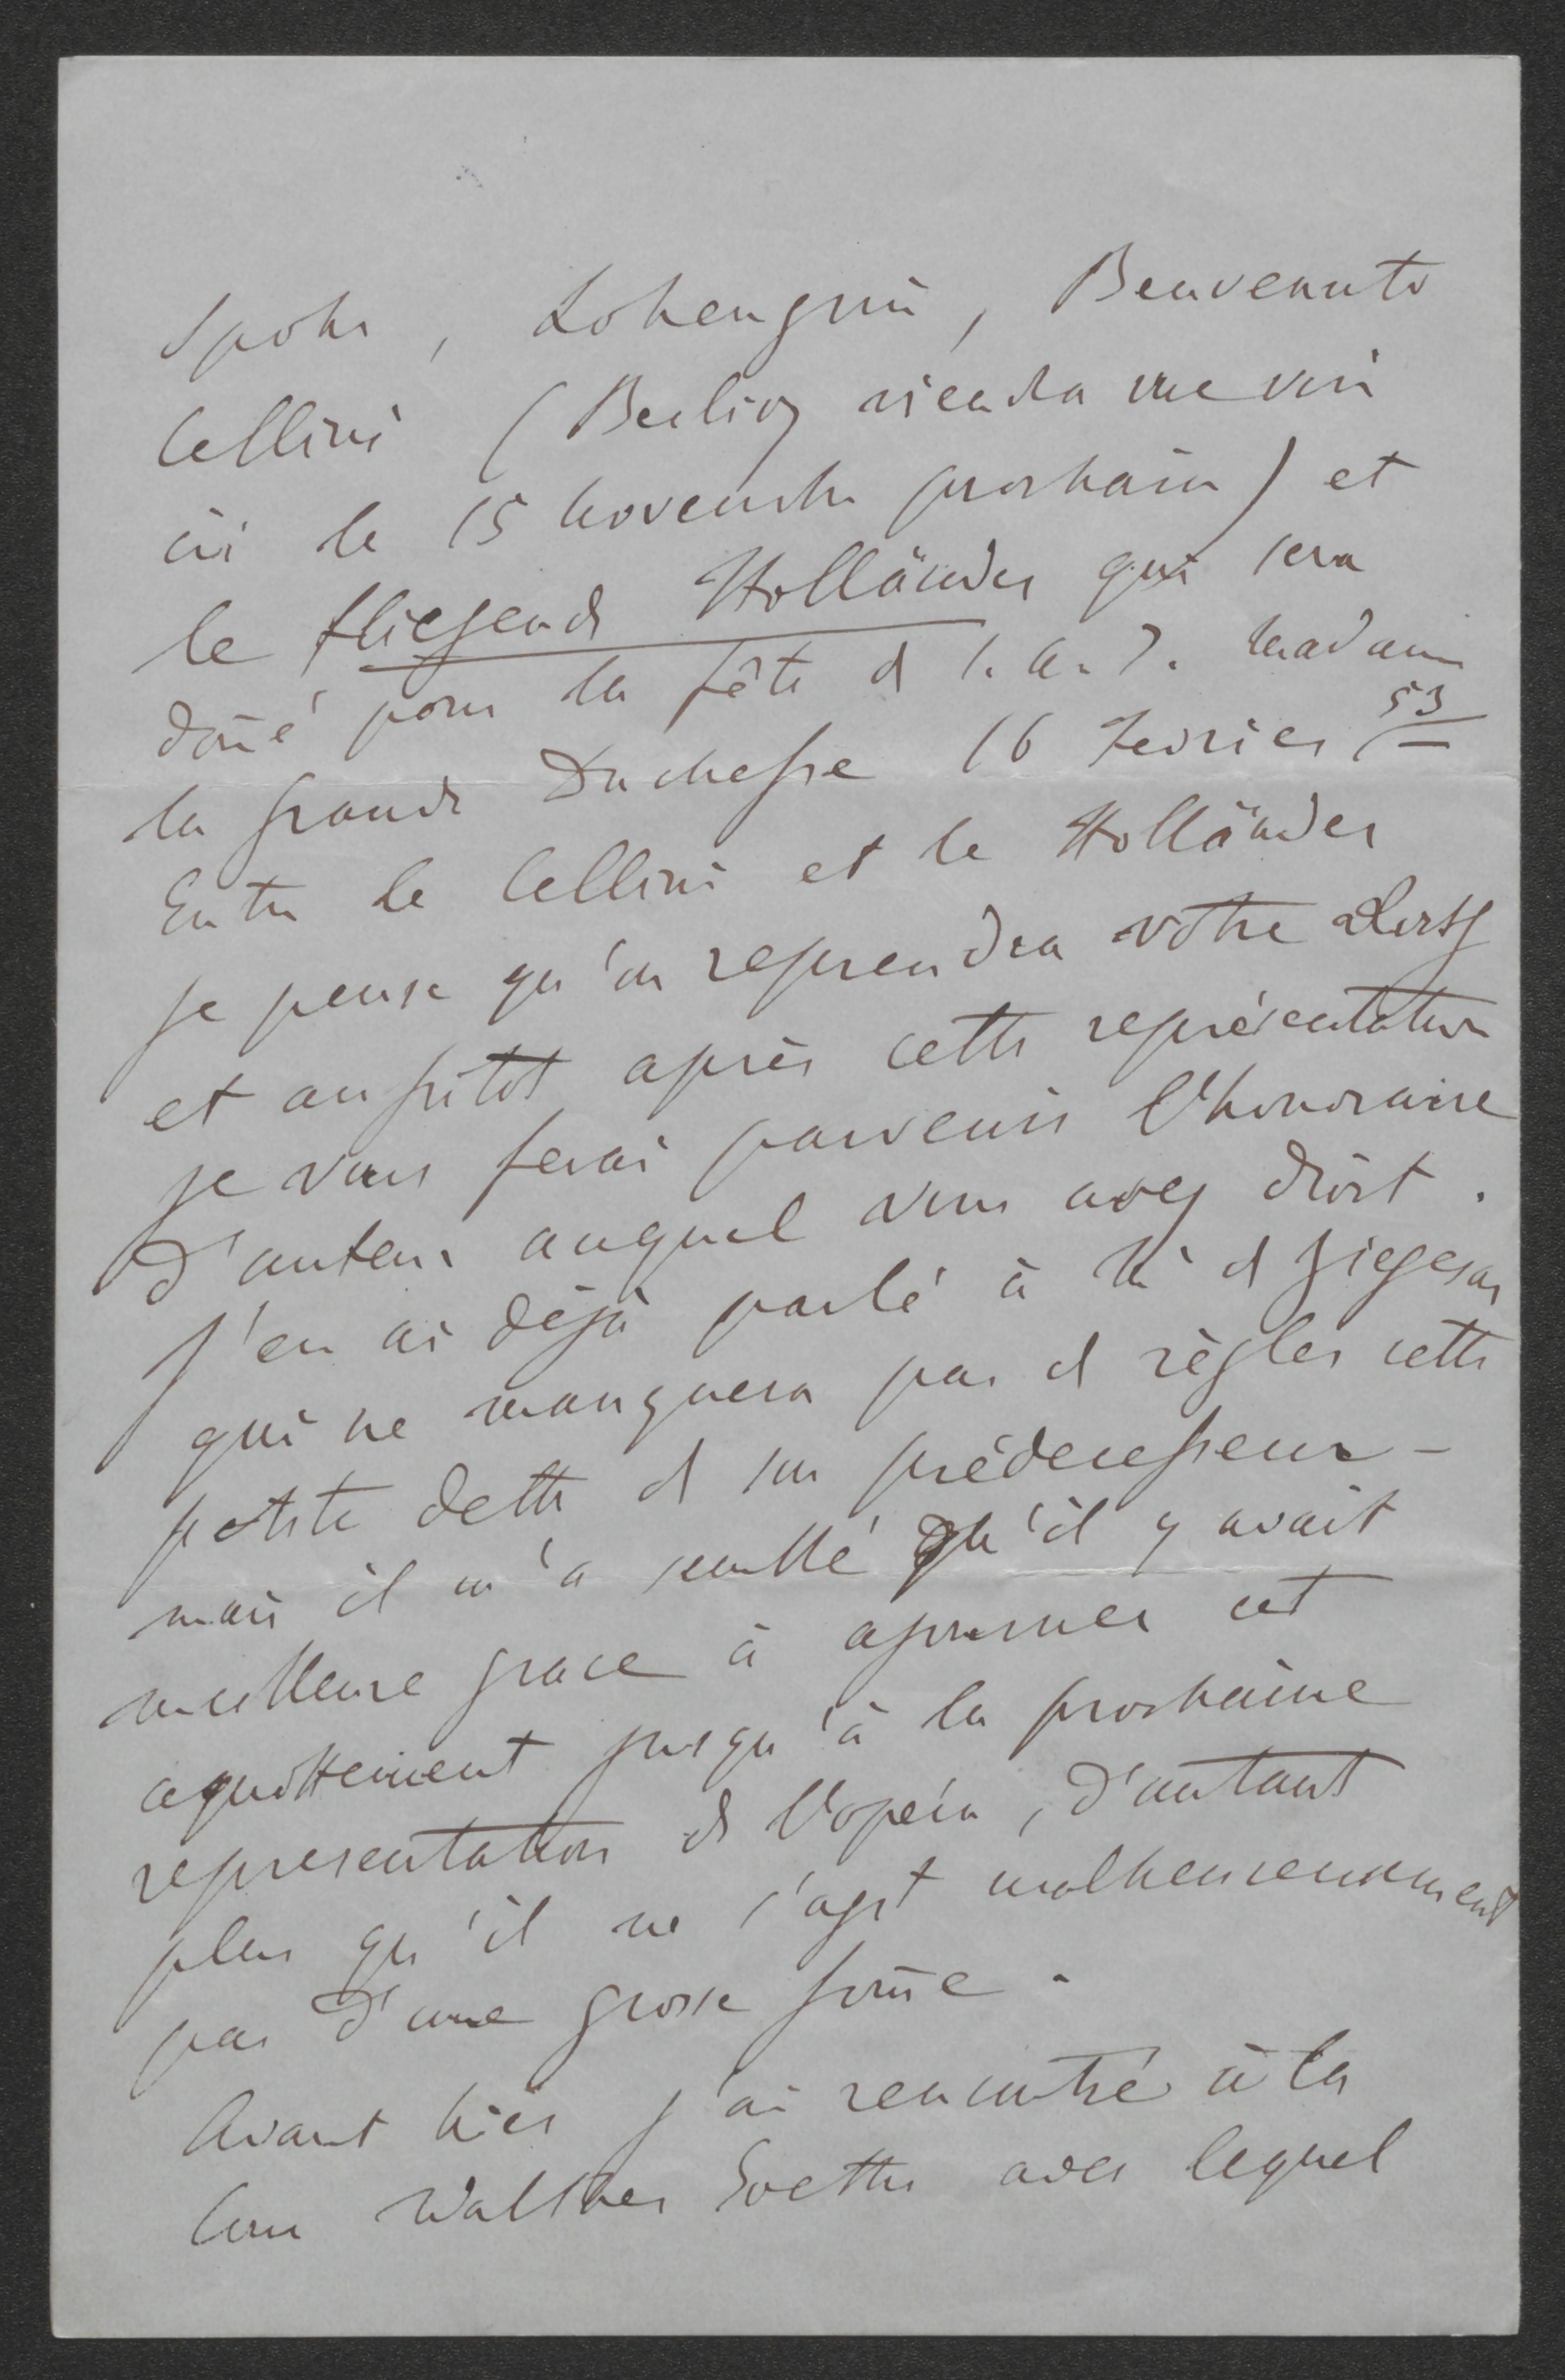 Spohr, Lohengrin, Benvenuto
Cellini (Berlioz viendra me voir
ici le 15 Novembre prochain) et
le fliegende Holländer qui sera
doñé pour la fête de S. A. I. Madame
la grande Duchesse 16 Fevrier 53
Entre le Cellini et le Holländer
je pense qu'on reprendra votre
et aussitôt après cette représentation
je vous ferai parvenir l'honoraire
d'auteur auquel vous avez droit.
J'en ai déjà parlé à Mr de Ziegesar
qui ne manquera pas de règler cette
petite dette de son prédecesseur –
mais il m'a semblé qu'il y avait
meilleure grace à ajourner cet
aquittement jusqu'à la prochaine
representation de l'opéra, d'autant
plus qu'il ne s'agit malheureusement
pas d'une grosse som̄e.
Avant hier j'ai rencontré à la
Cour Walther Goethe avec lequel